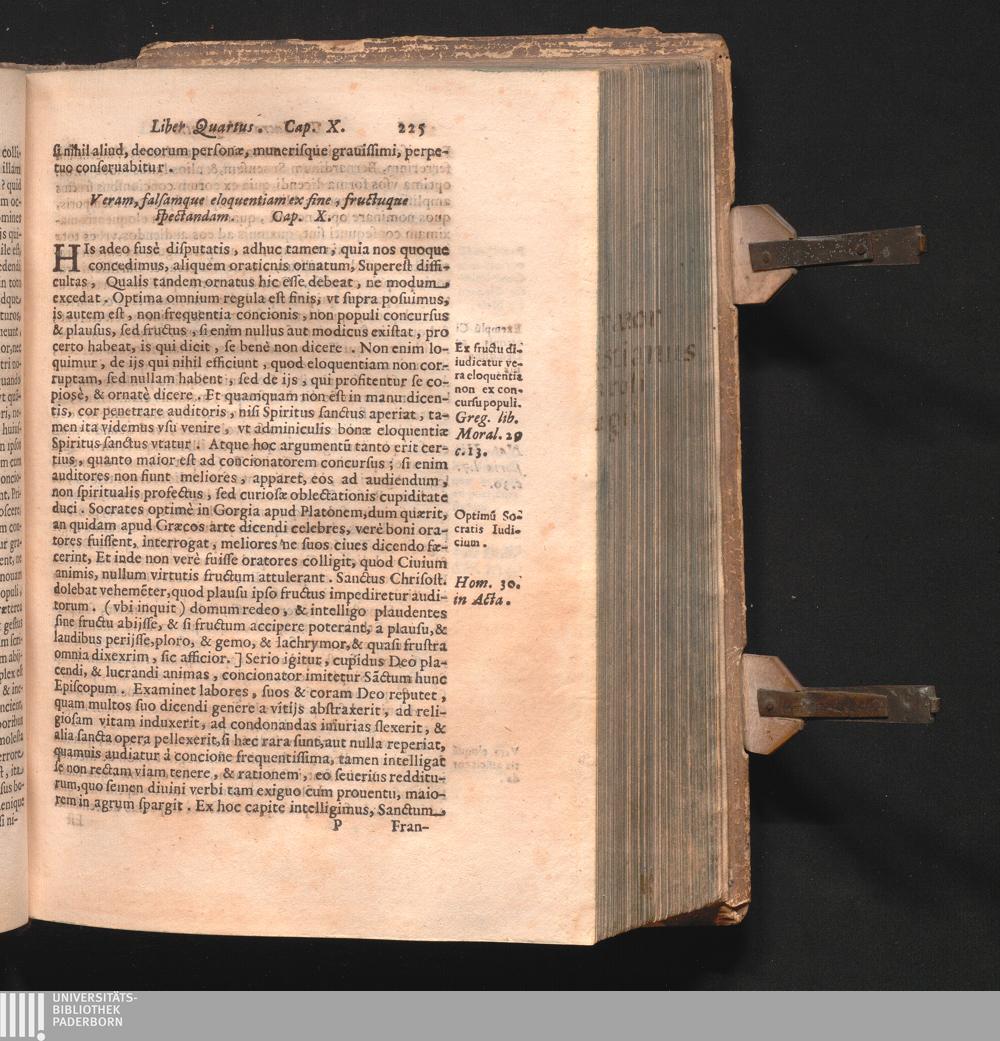 Liber Quartus. Cap. X. 225
si nihil aliud, decorum personæ, munerisque grauissimi, perpe-
tuo conseruabitur.
Veram, falsamque eloquentiam ex fine, fructuque
spectandam. Cap. X.
HIs adeo fusè disputatis, adhuc tamen, quia nos quoque
concedimus, aliquem orationis ornatum, Superest diffi-
cultas, Qualis tandem ornatus hic esse debeat, ne modum
excedat. Optima omnium regula est finis, vt supra posuimus,
is autem est, non frequentia concionis, non populi concursus
& plausus, sed fructus, si enim nullus aut modicus existat, pro
certo habeat, is qui dicit, se benè non dicere. Non enim lo-
quimur, de ijs qui nihil efficiunt, quod eloquentiam non cor-
ruptam, sed nullam habent, sed de ijs, qui profitentur se co-
piosè, & ornatè dicere. Et quamquam non est in manu dicen-
tis, cor penetrare auditoris, nisi Spiritus sanctus aperiat, ta-
men ita videmus vsu venire, vt adminiculis bonæ eloquentiæ
Spiritus sanctus vtatur. Atque hoc argumentū tanto erit cer-
tius, quanto maior est ad concionatorem concursus; si enim
auditores non fiunt meliores, apparet, eos ad audiendum,
non spiritualis profectus, sed curiosæ oblectationis cupiditate
duci. Socrates optimè in Gorgia apud Platonem, dum quærit,
an quidam apud Græcos arte dicendi celebres, verè boni ora-
tores fuissent, interrogat, meliores ne suos ciues dicendo fæ-
cerint, Et inde non verè fuisse oratores colligit, quod Ciuium
animis, nullum virtutis fructum attulerant. Sanctus Chrisost.
dolebat vehemēter, quod plausu ipso fructus impediretur audi-
torum. (vbi inquit) domum redeo, & intelligo plaudentes
sine fructu abijsse, & si fructum accipere poterant, a plausu, &
laudibus perijsse, ploro, & gemo, & lachrymor, & quasi frustra
omnia dixexrim, sic afficior. ] Serio igitur, cupidus Deo pla-
cendi, & lucrandi animas, concionator imitetur Sāctum hunc
Episcopum. Examinet labores, suos & coram Deo reputet,
quam multos suo dicendi genere a vitijs abstraxerit, ad reli-
giosam vitam induxerit, ad condonandas iniurias flexerit, &
alia sancta opera pellexerit, si hæc rara sunt, aut nulla reperiat,
quamuis audiatur à concione frequentissima, tamen intelligat
se non rectam viam tenere, & rationem, eo seuerius redditu-
rum, quo semen diuini verbi tam exiguo cum prouentu, maio-
rem in agrum spargit. Ex hoc capite intelligimus, Sanctum
P Fran-
Ex fructu di-
iudicatur ve-
ra eloquentia
non ex con-
cursu populi.
Greg. lib.
Moral. 29
c. 13.
Optimū So-
cratis Iudi-
cium.
Hom. 30.
in Acta.
UNIVERSITÄTS-
BIBLIOTHEK
PADERBORN